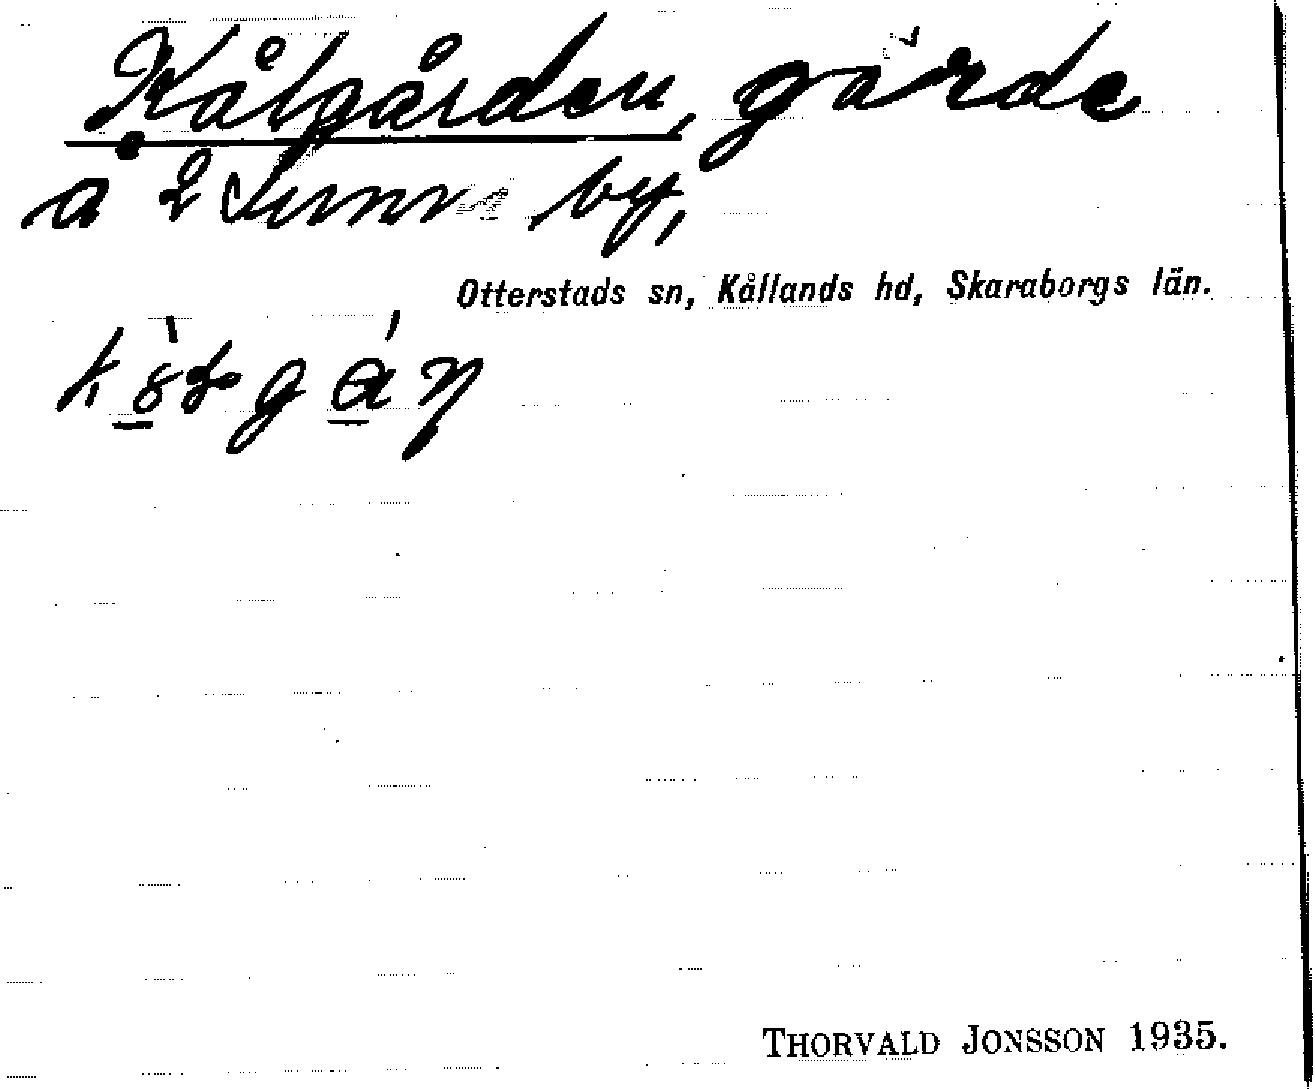 Kålgården, gärde
å 2 by,
Otterstads sn, Kållands hd, Skaraborgs län.
THORVALD JONSSON 1935.